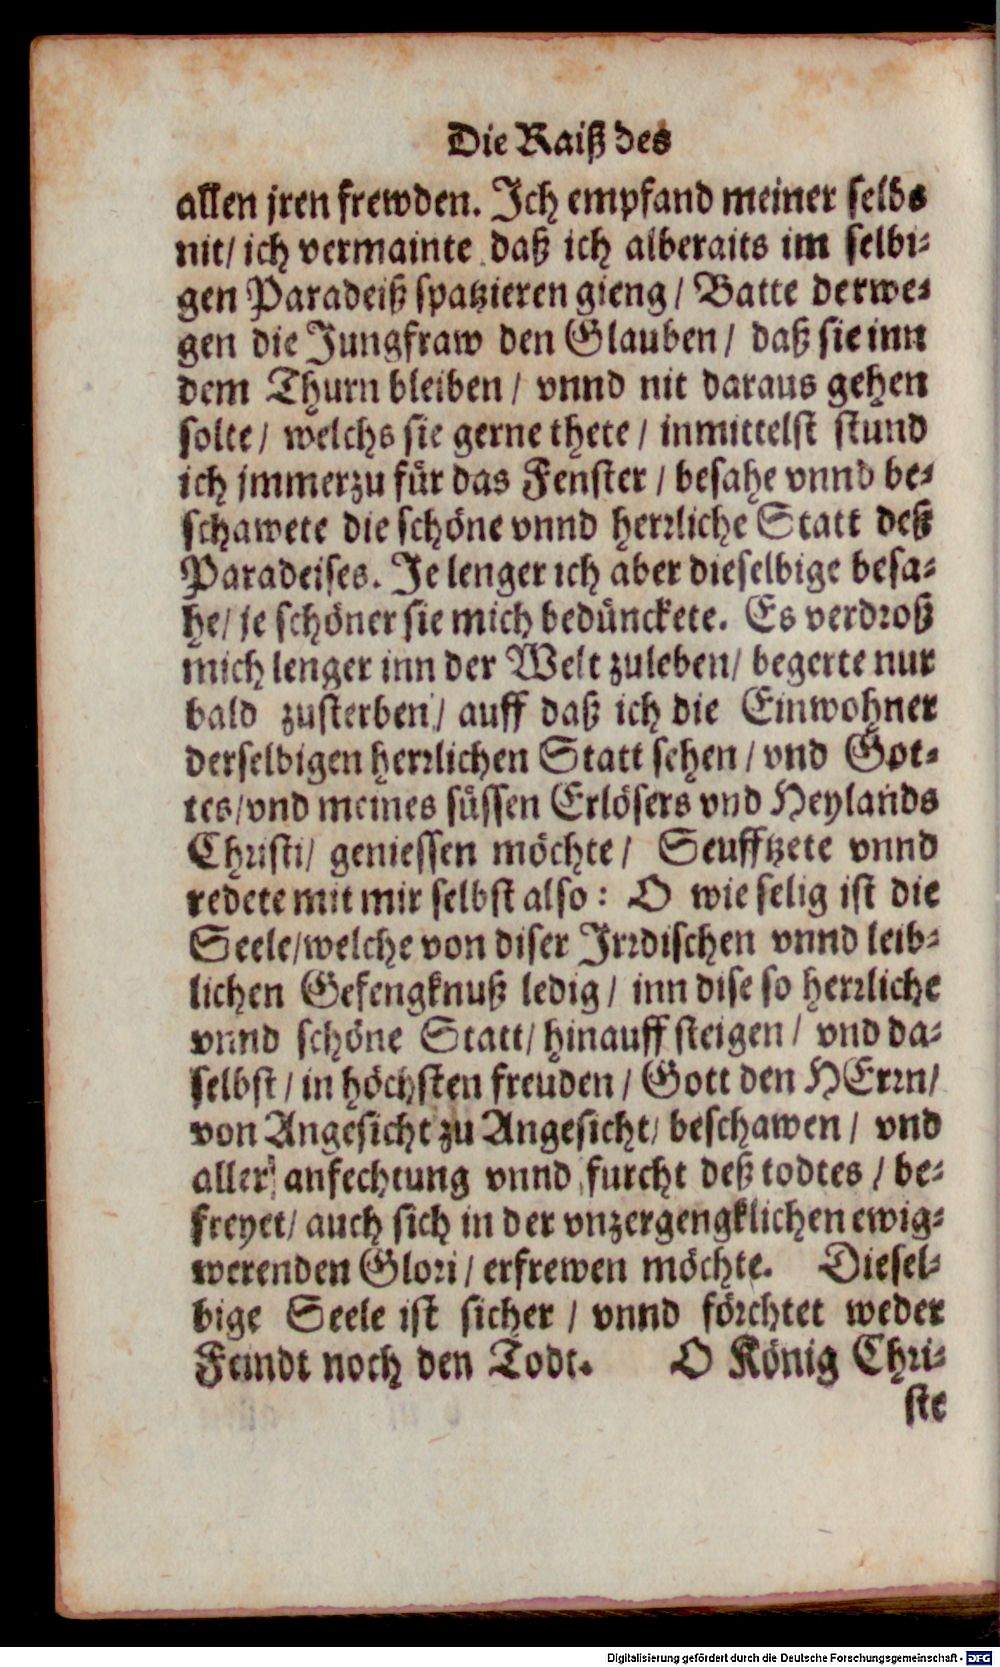 Die Raiß des
allen jren frewden. Ich empfand meiner selbs
nit/ ich vermainte daß ich alberaits im selbi-
gen Paradeiß spatzieren gieng / Batte derwe-
gen die Jungfraw den Glauben / daß sie inn
dem Thurn bleiben / vnnd nit daraus gehen
solte / welchs sie gerne thete / inmittelst stund
ich jmmerzu für das Fenster / besahe vnnd be-
schawete die schöne vnnd herrliche Statt deß
Paradeises. Je lenger ich aber dieselbige besa-
he/ je schöner sie mich bedünckete. Es verdroß
mich lenger inn der Welt zuleben/ begerte nur
bald zusterben / auff daß ich die Einwohner
derselbigen herrlichen Statt sehen / vnd Got-
tes/vnd meines süssen Erlösers vnd Heylands
Christi/ geniessen möchte / Seufftzete vnnd
redete mit mir selbst also: O wie selig ist die
Seele/welche von diser Irrdischen vnnd leib-
lichen Gefengknuß ledig / inn dise so herrliche
vnnd schöne Statt/ hinauff steigen / vnd da-
selbst / in höchsten freuden / Gott den HErrn/
von Angesicht zu Angesicht/ beschawen / vnd
aller anfechtung vnnd furcht deß todtes / be-
freyet/ auch sich in der vnzergengklichen ewig-
werenden Glori / erfrewen möchte. Diesel-
bige Seele ist sicher / vnnd förchtet weder
Feindt noch den Todt. O König Chri-
ste
Digitalisierung gefördert durch die Deutsche Forschungsgemeinschaft - DFG